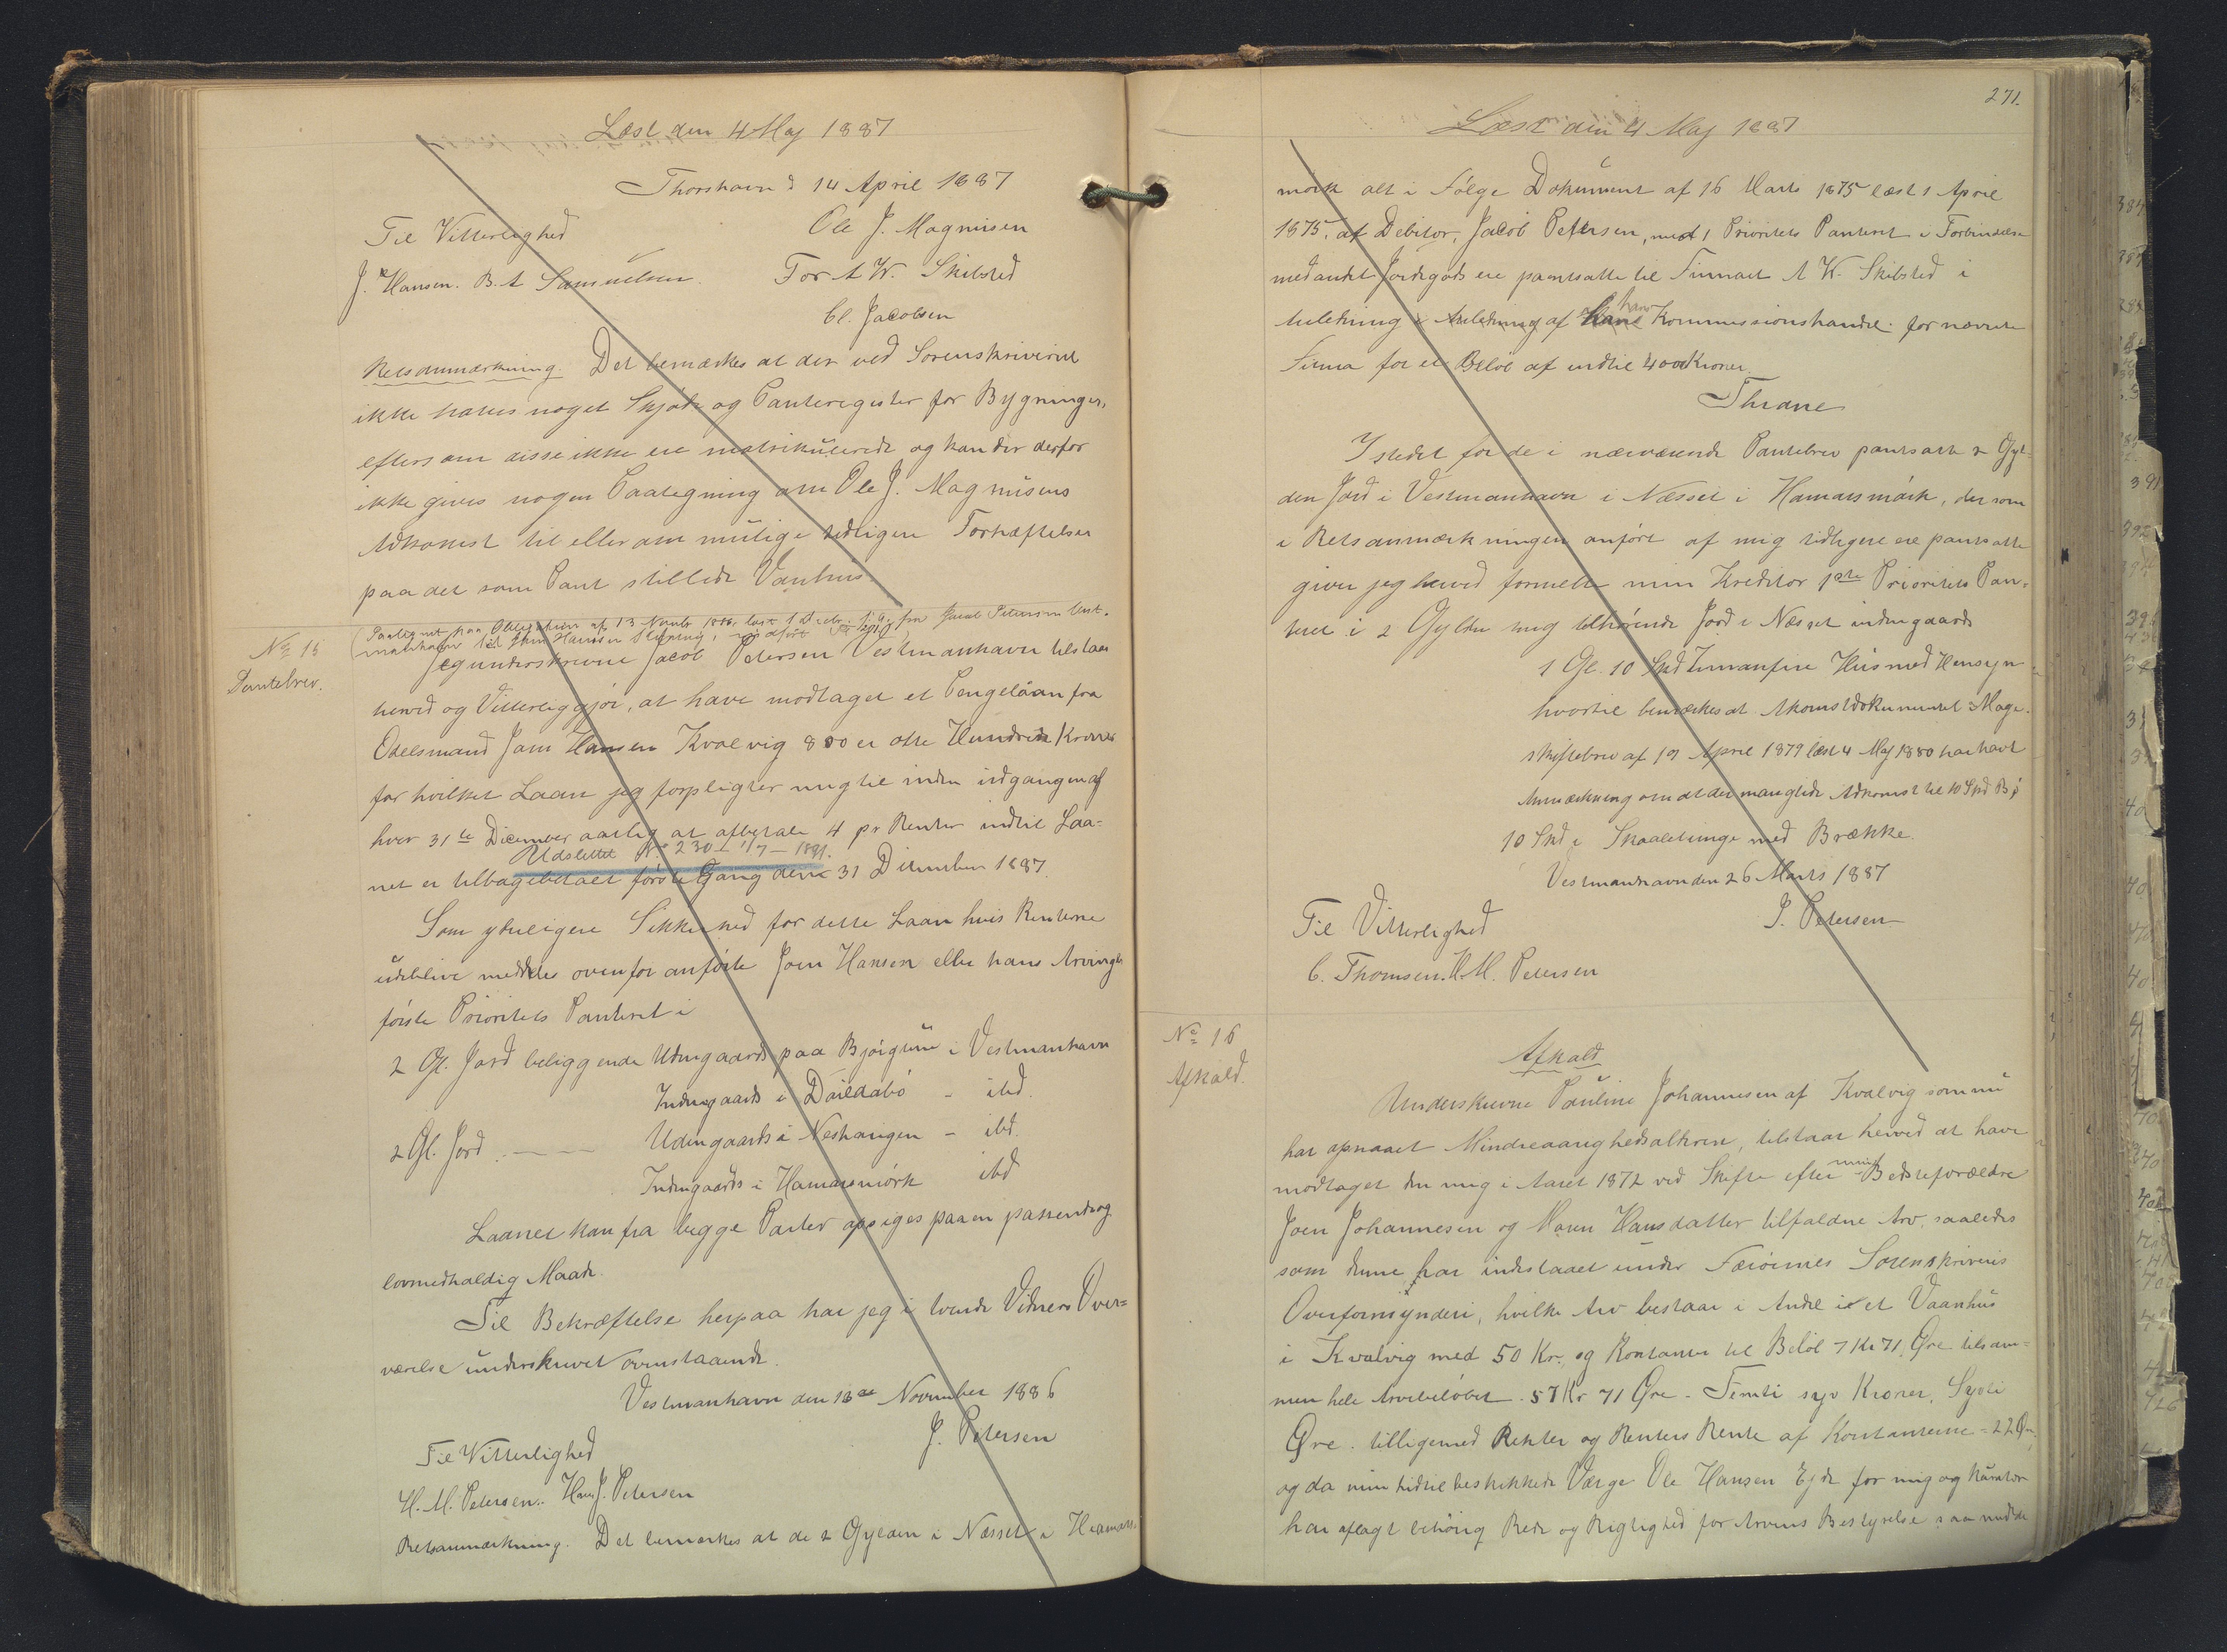 Læst den 4 Maj 1887
Thorshavn d 14 April 1887
Til Vitterlighed
Ole J. Magnusen
J. Hansen. B. A Samuelsen.
For A W. Skibsted
Cl. Jacobsen
Retsanmærkning. Det bemærkes at der ved Sorenskriveriet
ikke haves noget Skjøde og Panteregister for Bygninger,
eftersom disse ikke ere matrikulerede og kan der derfor
ikke gives nogen Paategning om Ole J. Magnusens
Adkomst til eller om mulige tidligere Forhæftelser
paa det som Pant stillede Vaanhus.
Paategnet paa Obligation af 13 Novembr 1886, læst fra Jacob Petersen Vest-
manhavn til Hansen
No 15
Pantebrev.
Jeg underskrevne Jacob Petersen Vestmanhavn tilstaar
herved og Vitterliggjør, at have modtaget et Pengelaan fra
Odelsmand Joen Hansen Kvalvig 800 er otte Hundrede Kroner
for hvilket Laan jeg forpligter mig til inden udgangen af
hver 31te December aarlig at afbetale 4 pr Renter indtil Laa-
Udslettet No 230 - 1/7 - 1891.
net er tilbagebetalt første Gang den 31 December 1887.
Som yderligere Sikkerhed for dette Laan hvis Renterne
udeblive meddeles ovenfor anførte Joen Hansen eller hans Arvinger
første Prioritets Panteret i
2 Gl. Jord beliggende Udengaards paa Bjørgune i Vestmanhavn
Indengaards i Daildabø - ibd.
2 Gl. Jord — — Udengaards i Neshaugen - ibd.
Indengaards i Hamarsmørk ibd
Laanet kan fra begge Parter opsiges paa en passende og
lovmedholdig Maade.
Til Bekræftelse herpaa har jeg i tvende Vidners Over-
værelse underskrevet ovenstaaende.
Vestmanhavn den 13de November 1886
J. Petersen
Til Vitterlighed
H. M. Petersen. Hans J. Petersen
Retsanmærkning. Det bemærkes at de 2 Gylden i Næsset i Hamars-
271.
Læst den 4 Maj 1887
mørk alt i Følge Dokument af 16 Marts 1875 læst 1 April
1875, af Debitor, Jacob Petersen, med 1 Prioritets Panteret i Forbindelse
med andet Jordegods ere pantsatte til Firmaet A W. Skibsted i
Anledning i Anledning af hans Kommissionshandel for nævnte
Firma for et Beløb af indtil 4000 Kroner.
Thrane
I stedet for de i nærværende Pantebrev pantsatte 2 Gyl-
den Jord i Vestmanhavn i Næsset i Hamarsmørk, der som
i Retsanmærkningen anført af mig tidligere ere pantsatte
giver jeg herved formelte min Kreditor 1ste Prioritets Pan-
teret i 2 Gylden mig tilhørende Jord i Næsset indengaards
1 Gl. 10 Skd Husmed Hensyn
hvortil bemærkes at Akomstdokumentet Mage-
skiftebrev af 19 April 1879 læst 4 Maj 1880 har havt
Anmærkning om at der manglede Adkomst til 10 Skd Bø
10 Skd i Skaaletunge med Brække.
Vestmanhavn den 26 Marts 1887
J. Petersen
Til Vitterlighed
C. Thomsen. H. M. Petersen
No 16
Afkald.
Afkald
Underskrevne Pauline Johannesen af Kvalvig som nu
har opnaaet Mindreaarighedsalderen, tilstaar herved at have
modtaget den mig i Aaret 1872 ved Skifte efter mine Bedsteforældre
Joen Johannesen og Maren Hansdatter tilfaldne Arv, saaledes
som denne har indestaaet under Færøernes Sorenskriveris
Overformynderi, hvilke Arv bestaar i Andel i et Vaanhus
i Kvalvig med 50 Kr. og Kontanter til Beløb 7 Kr 71 Øre tilsam-
men hele Arvebeløbet 57 Kr 71 Øre - Femti syv Kroner, Sytti
Øre. tilligemed Renter og Renters Rente af Kontanterne = 22 Øre,
og da min hidtil beskikkede Værge Ole Hansen Ejde for mig og Kurator
har aflagt behørig Rede og Rigtighed for Arvens Bestyrelse saa meddele